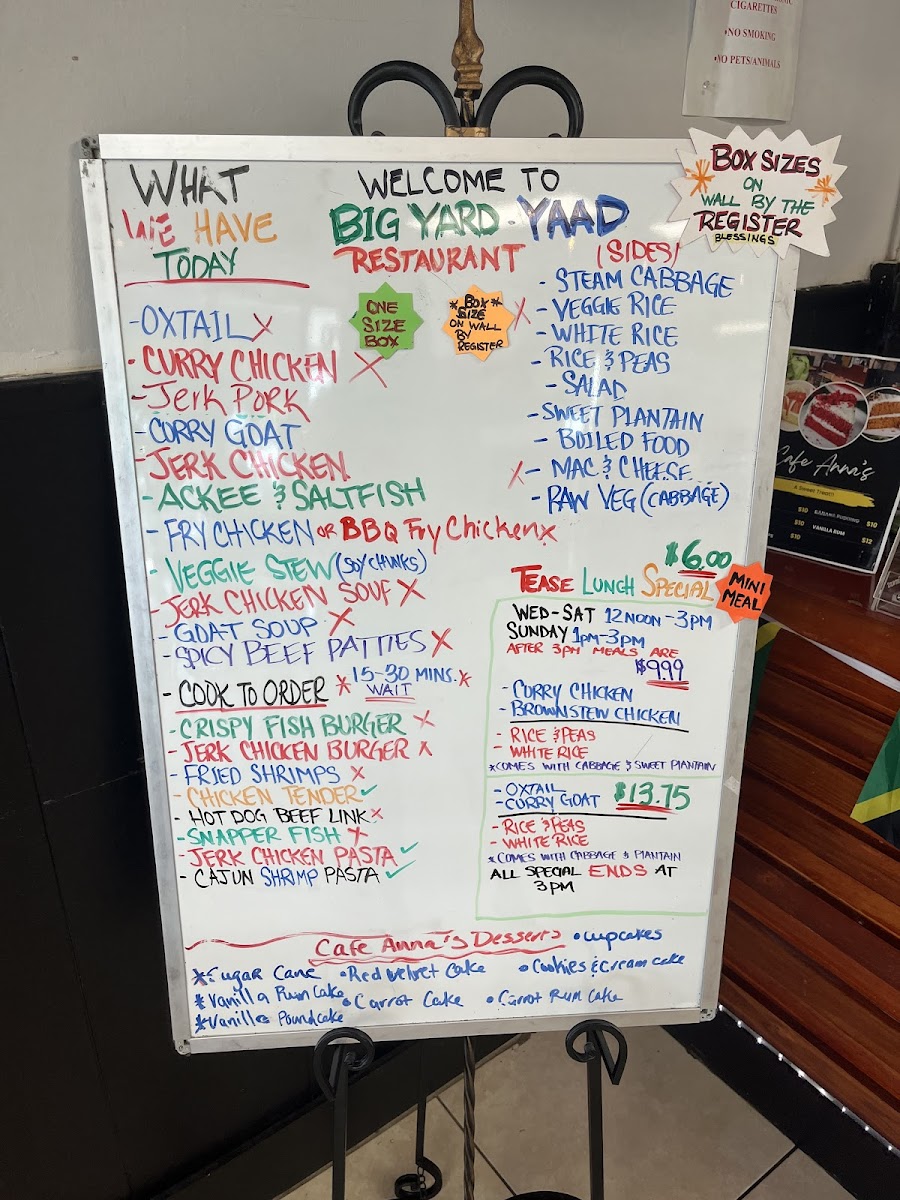 CIGARETTES
•NO SMOKING
•NO PETS/ANIMALS
BOX SIZES
ON
WALL BY THE
REGISTER
BLESSINGS
WHAT
WE HAVE
TODAY
WELCOME TO
BIG YARD - YAAD
RESTAURANT
ONE
SIZE
BOX
*BOX*
SIZE
ON WALL
BY
REGISTER
- OXTAIL X
- CURRY CHICKEN X
- Jerk Pork
- CURRY GOAT
- JERK CHICKEN
- ACKEE & SALTFISH
- FRY CHICKEN OR BBQ Fry Chicken X
- VEGGIE STEW (SOY CHUNKS)
- JERK CHICKEN SOUP X
- GOAT SOUP X
- SPICY BEEF PATTIES X
- COOK TO ORDER * 15-30 MINS. *
WAIT
- CRISPY FISH BURGER X
- JERK CHICKEN BURGER X
- FRIED SHRIMPS X
- CHICKEN TENDER ✓
- HOT DOG BEEF LINK X
- SNAPPER FISH X
- JERK CHICKEN PASTA ✓
- CAJUN SHRIMP PASTA ✓
(SIDES)
- STEAM CABBAGE
X - VEGGIE RICE
- WHITE RICE
- RICE & PEAS
- SALAD
- SWEET PLANTAIN
- BOILED FOOD
X - MAC & CHEESE
- RAW VEG (CABBAGE)
$6.00
TEASE LUNCH SPECIAL
MINI
MEAL
WED-SAT 12 NOON-3PM
SUNDAY 1PM-3PM
AFTER 3PM MEALS ARE
$9.99
- CURRY CHICKEN
- BROWNSTEW CHICKEN
- RICE & PEAS
- WHITE RICE
*COMES WITH CABBAGE & SWEET PLANTAIN
- OXTAIL
- CURRY GOAT $13.75
- RICE & PEAS
- WHITE RICE
*COMES WITH CABBAGE & PLANTAIN
ALL SPECIAL ENDS AT
3PM
Cafe Anna's Desserts
• cupcakes
*Sugar Cane
•Red Velvet Cake
• Cookies & Cream cake
*Vanilla Rum Cake
•Carrot Cake
• Carrot Rum Cake
*Vanilla Poundcake
Cafe Anna's
A Sweet Treat!!
$10
BANANA PUDDING $10
$10
VANILLA RUM $12